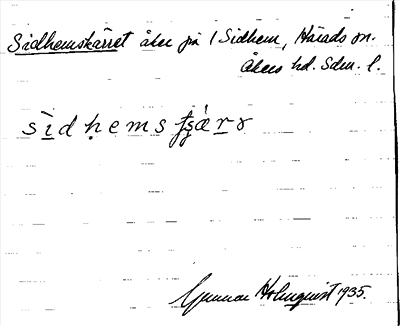 Sidhemskärret åker på 1 Sidhem, Härads sn.
Åkers hd. Sdm. l.
sìdḥems
Gunnar Holmquist 1935.